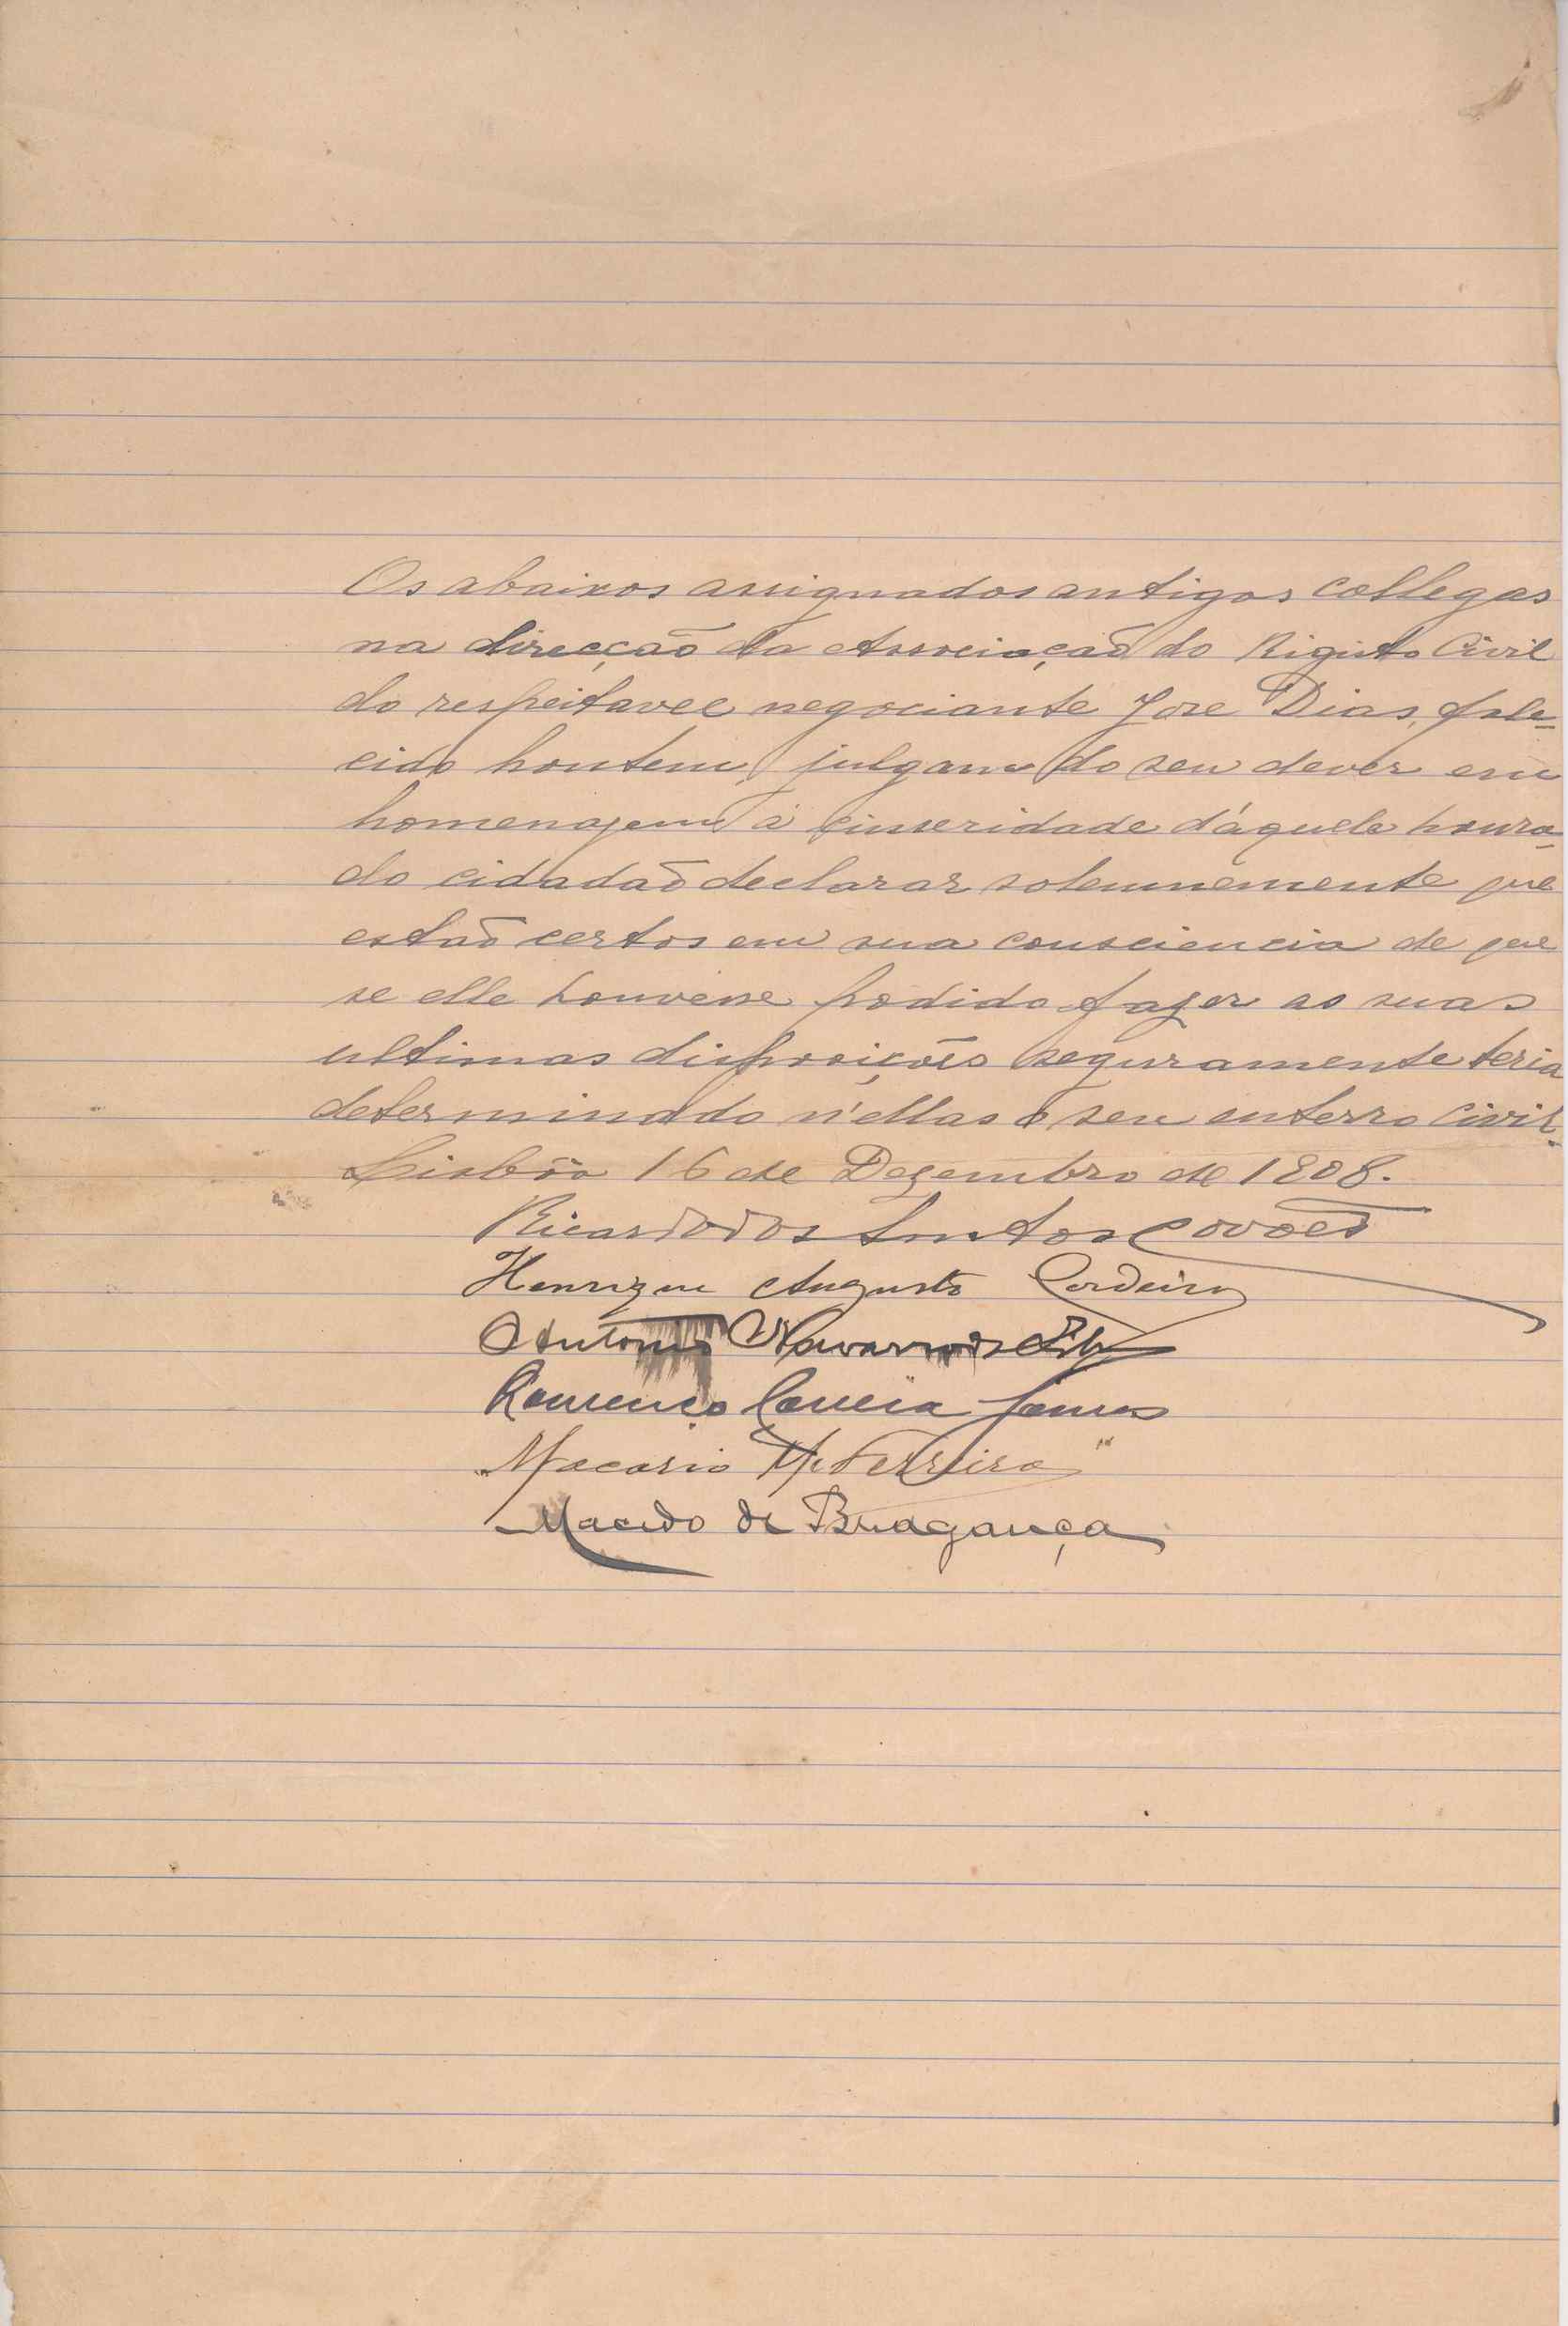 Os abaixos assignados antigos collegas
na direcção da Associação do Registo Civil
do respeitavel negociante Jose Dias, fale-
cido hontem, julgam do seu dever em
homenagem á sinseridade d'áquele honra-
do cidadaõ declarar solemnemente que
estaõ certos em sua consciencia de que
se elle houvesse podido fazer as suas
ultimas disposições seguramente teria
determinado n'ellas o seu enterro civil.
Lisbôa 16 de Dezembro de 1908.
Ricardo dos Santos Covões
Henrique Augusto Cordeiro
Antonio Navarro
Lourenço Correia Gomes
Macario M. Ferreira
Macedo de Bragança